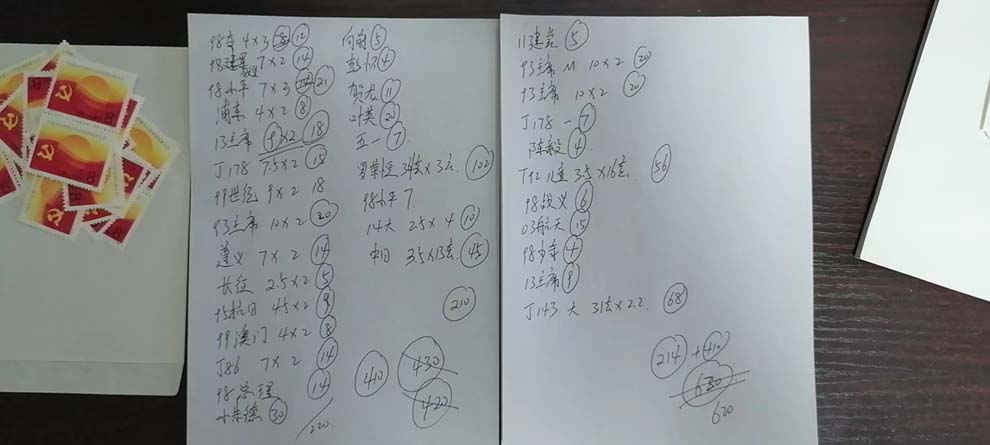 98 4×3 12
98建军 7×2 14
98小平 7×3 21
浦东 4×2 8
13主席 9×2 18
J178 7.5×2 15
99世纪 9×2 18
93主席 10×2 20
遵义 7×2 14
长征 2.5×2 5
95抗日 4.5×2 9
99澳门 4×2 8
J86 7×2 14
98 14
小朱德 30
220
向前 5
彭 4
贺龙 11
叶英 20
五一 7
罗荣恒 34套×3套 102
98小平 7
14大 2.5×4 10
中日 3.5×13套 45
210
410
430
420
11建党 5
93主席 M 10×2 20
93主席 10×2 20
J178 一 7
陈毅 4
J92 儿童 3.5×16套 56
98 义 6
03航天 15
98 4
13主席 9
J143 大 31套×2.2 68
214 + 410
630
620
8
8
8
8